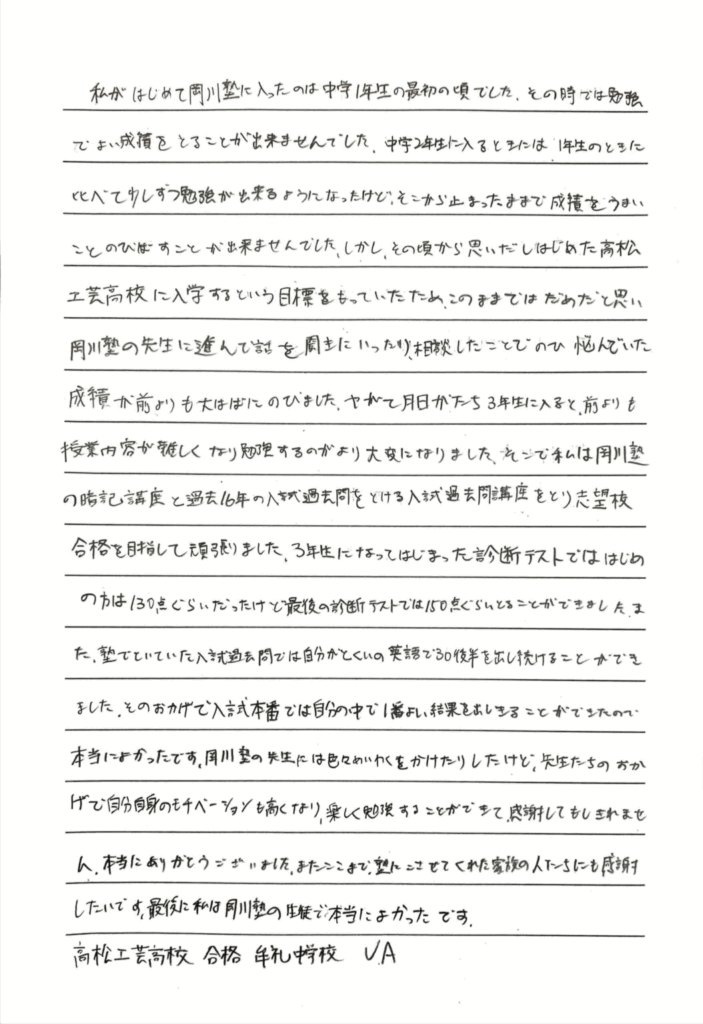 私がはじめて岡川塾に入ったのは中学1年生の最初の頃でした。その時では勉強
でよい成績をとることが出来ませんでした。中学2年生に入るときには1年生のときに
比べて少しずつ勉強が出来るようになったけど、そこから止まったままで成績をうまい
ことのびばすことが出来ませんでした。しかし、その頃から思いだしはじめた高松
工芸高校に入学するという目標をもっていたため、このままではだめだと思い
岡川塾の先生に進んで話を聞きにいったり、相談したことでのび悩んでいた
成績が前よりも大はばにのびました。やがて月日がたち3年生に入ると、前よりも
授業内容が難しくなり勉強するのがより大変になりました。そこで私は岡川塾
の暗記講座と過去16年の入試過去問をとける入試過去問講座をとり志望校
合格を目指して頑張りました。3年生になってはじまった診断テストでははじめ
の方は130点ぐらいだったけど最後の診断テストでは150点ぐらいとることができました。ま
た、塾でといていた入試過去問では自分がとくいの英語で30後半を出し続けることができ
ました。そのおかげで入試本番では自分の中で1番よい結果を出しきることができたので
本当によかったです。岡川塾の先生には色々めいわくをかけたりしたけど、先生たちのおか
げで自分自身のモチベーションも高くなり、楽しく勉強することができて、感謝してもしきれませ
ん。本当にありがとうございました。またここまで、塾にこさせてくれた家族の人たちにも感謝
したいです。最後に私は岡川塾の生徒で本当によかったです。
高松工芸高校 合格 牟礼中学校 V.A